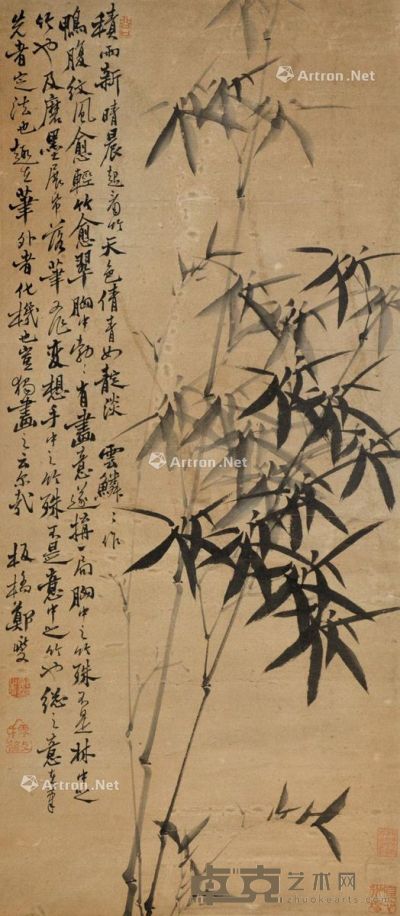 積雨新晴晨起看竹天色倩青如靛淡雲鱗〻作
鴨腹紋風愈輕竹愈翠胸中勃〻有畫意遂搆一局胸中之竹殊不是林中之
竹也及磨墨展帋落筆作變想手中之竹殊不是意中之竹也總之意在筆
先者定法也趣在筆外者化機也豈獨畫之云尔哉 板橋鄭燮
Artron.Net
Artron.Net
Artron.Net
Artron.Net
Artron.Net
Artron.Net
卓克艺术网
zhuokearts.com